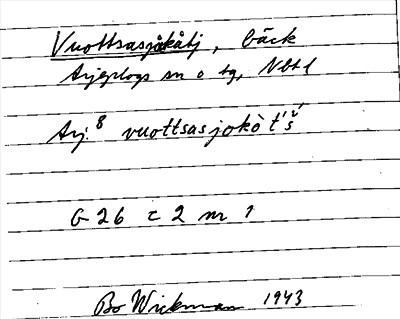 Vuottsasjåkåtj, bäck
Arjeplogs sn o tg, Nbtl
Arj. 8 vuottsasjokò t́š́
G 26 c 2 nr 1
Bo Wickman 1943